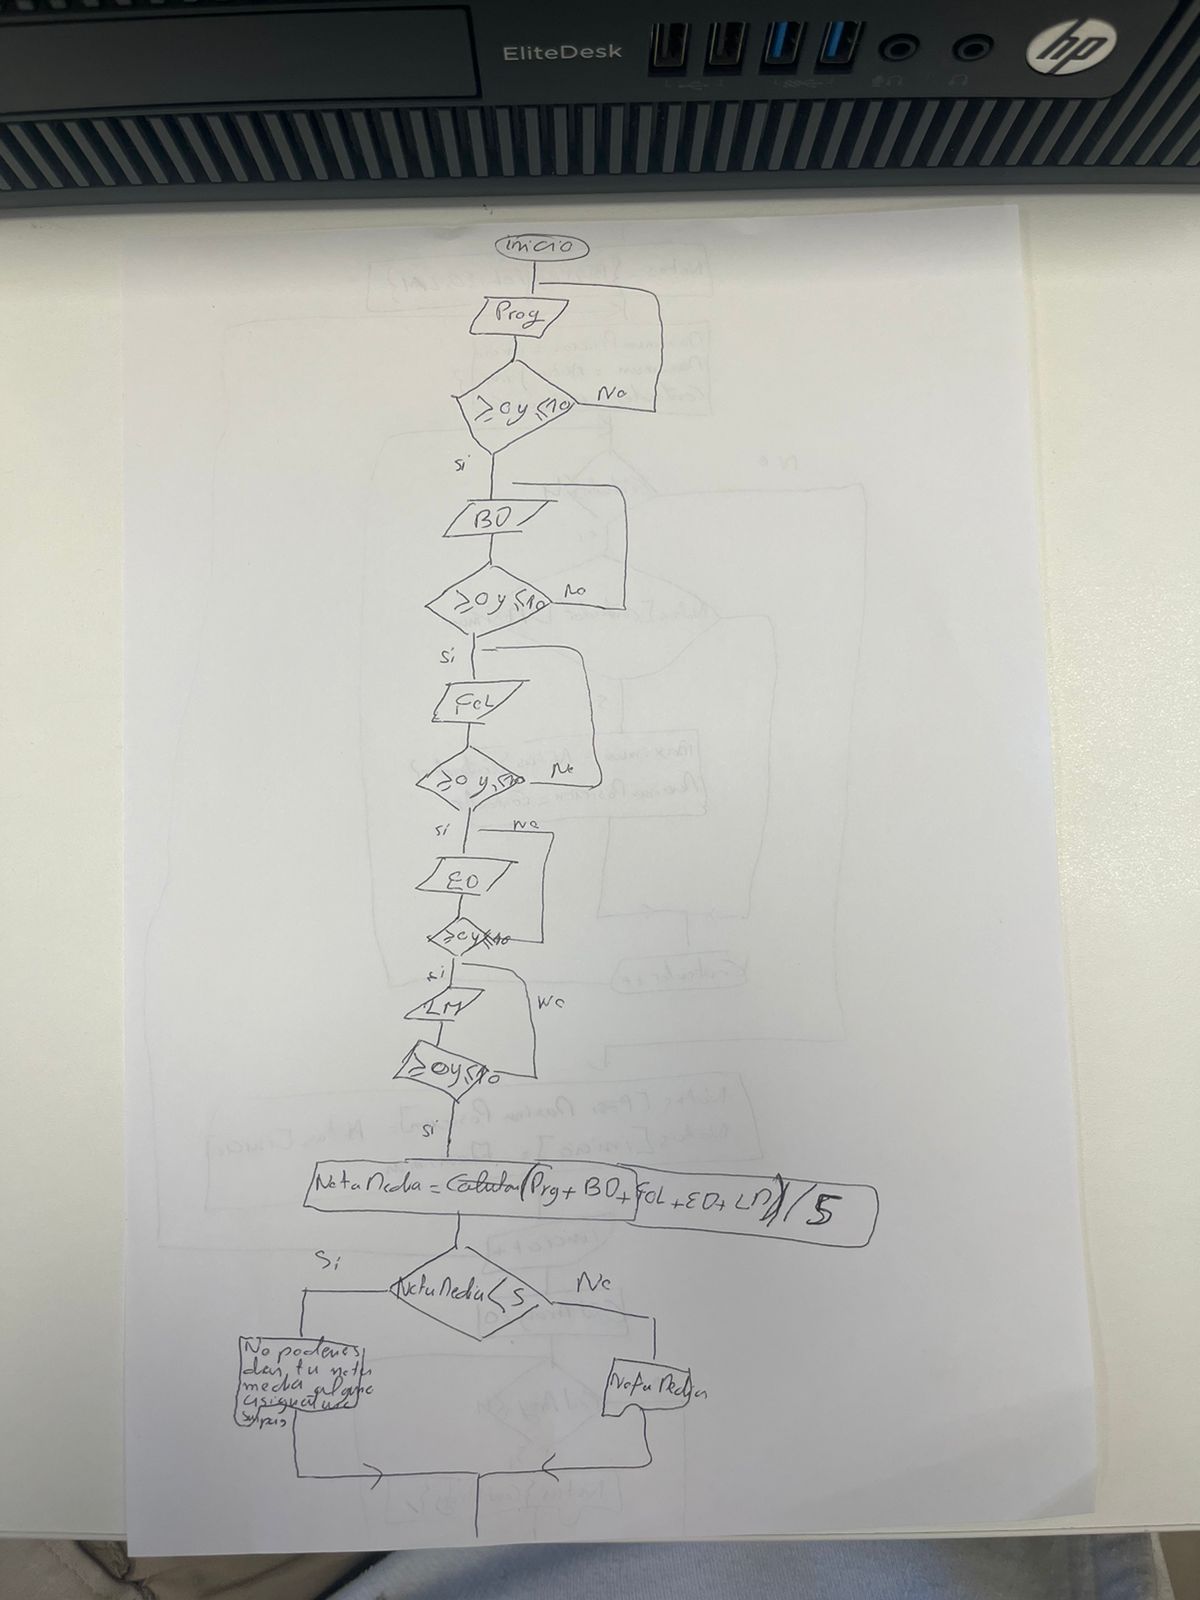 EliteDesk
hp
inicio
Prog
≥0 y ≤10
No
si
BD
≥0 y ≤10
No
si
FOL
≥0 y ≤10
No
si
No
ED
≥0 y ≤10
si
LM
No
≥0 y ≤10
si
Nota Media = (Prg + BD + FOL + ED + LM) / 5
Si
Nota Media < 5
No
No podemos
dar tu nota
media alguna
asignatura
Nota Media